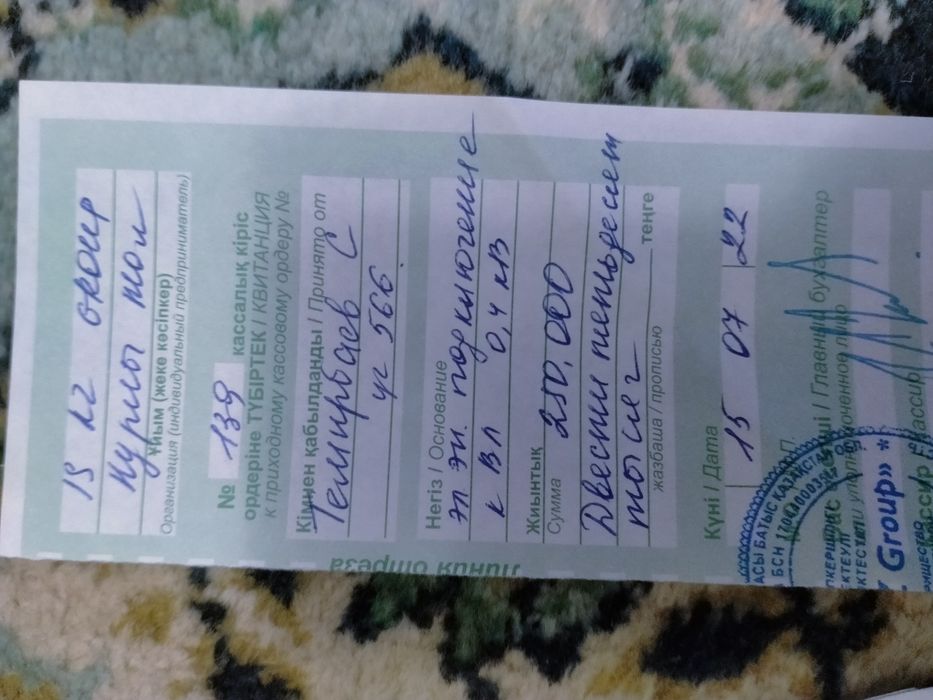 15 22 окоир
нурлы жол
Ұйым (жеке кәсіпкер)
Организация (индивидуальный предприниматель)
№ 139 кассалық кіріс
ордеріне ТҮБІРТЕК / КВИТАНЦИЯ
к приходному кассовому ордеру №
Кімнен қабылданды / Принято от
Темирбаев С
уч 566
Негіз / Основание
эл. подключение
к ВЛ 0,4 кВ
Жиынтық
Сумма 250,000
Двести пеньдесят
тысяг теңге
жазбаша / прописью
Күні / Дата 15 07 22
Главный бухгалтер
Group» *
линия отреза